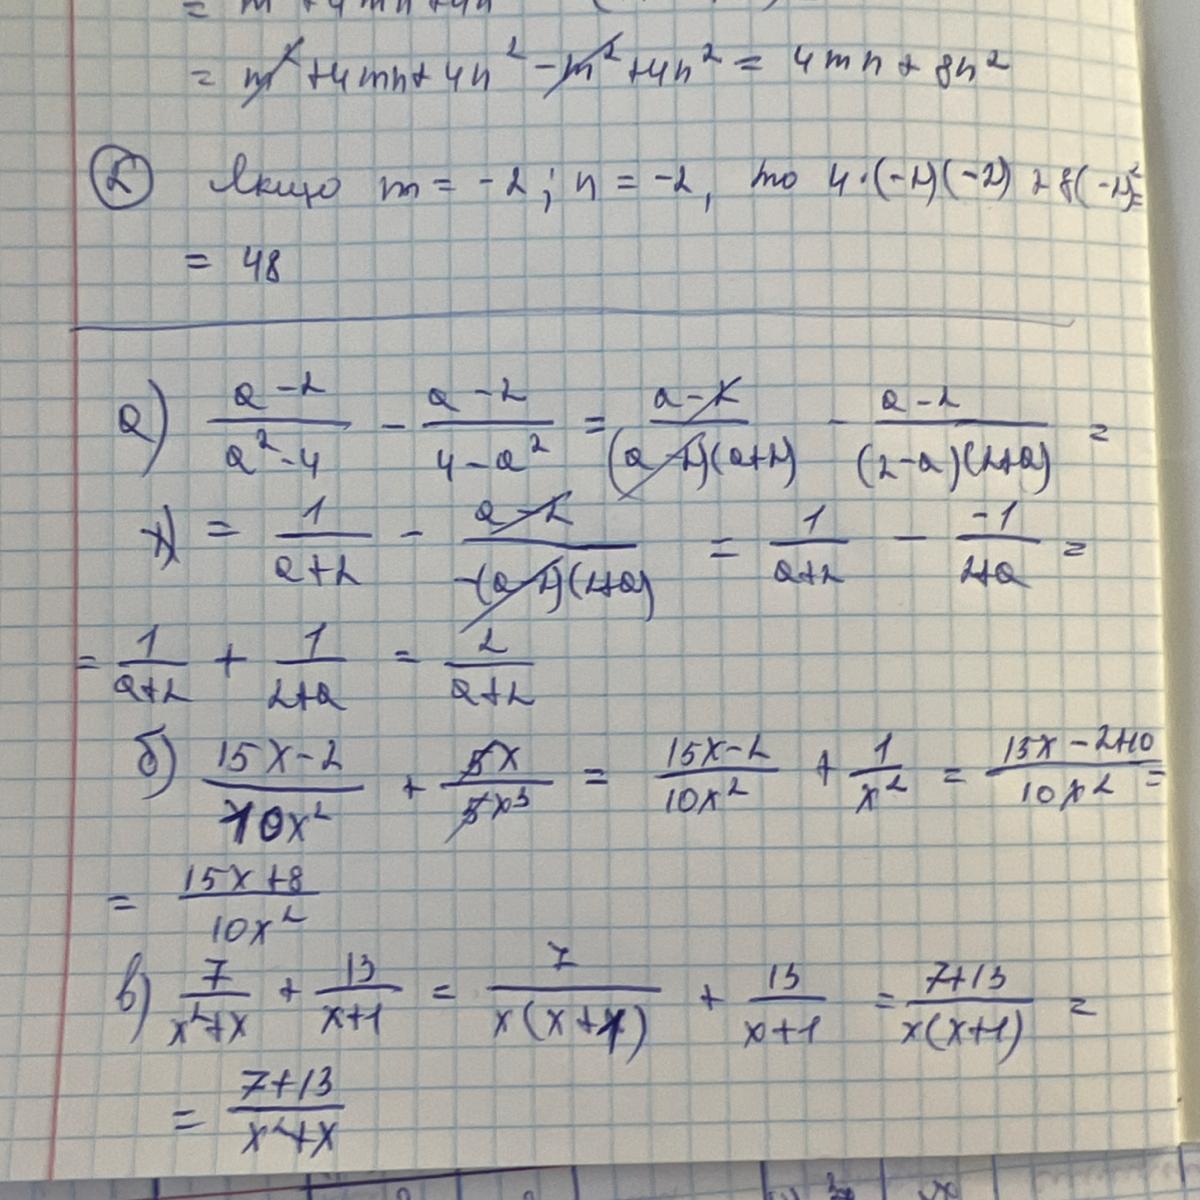 = m² + 4mn + 4n²
= m² + 4mn + 4n² - m² + 4n² = 4mn + 8n²
② Якщо m = -2; n = -2, то 4·(-2)(-2) + 8(-2)² =
= 48
а) (a-2)/(a²-4) - (a-2)/(4-a²) = (a-2)/((a-2)(a+2)) - (a-2)/((2-a)(2+a)) =
= 1/(a+2) - (a-2)/(-(a-2)(2+a)) = 1/(a+2) - (-1)/(2+a) =
= 1/(a+2) + 1/(2+a) = 2/(a+2)
б) (15x-2)/(10x²) + 5x/(5x³) = (15x-2)/(10x²) + 1/x² = (15x-2+10)/(10x²) =
= (15x+8)/(10x²)
в) 7/(x²+x) + 13/(x+1) = 7/(x(x+1)) + 13/(x+1) = (7+13)/(x(x+1)) =
= (7+13)/(x²+x)